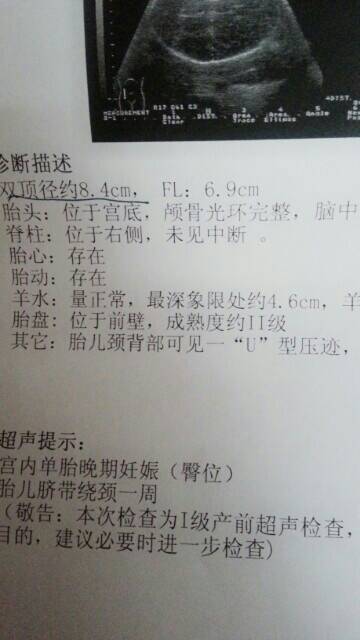 诊断描述
双顶径约8.4cm， FL：6.9cm
胎头：位于宫底，颅骨光环完整，脑中
脊柱：位于右侧，未见中断 。
胎心：存在
胎动：存在
羊水：量正常，最深象限处约4.6cm，羊
胎盘：位于前壁，成熟度约II级
其它：胎儿颈背部可见一“U”型压迹，
超声提示：
宫内单胎晚期妊娠（臀位）
胎儿脐带绕颈一周
（敬告：本次检查为I级产前超声检查，
目的，建议必要时进一步检查）